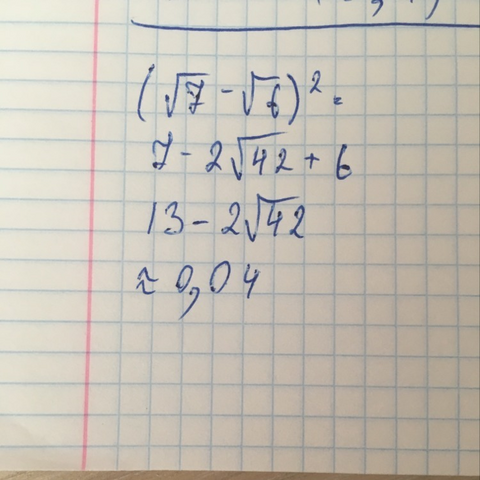 (√7 - √6)² =
7 - 2√42 + 6
13 - 2√42
≈ 0,04